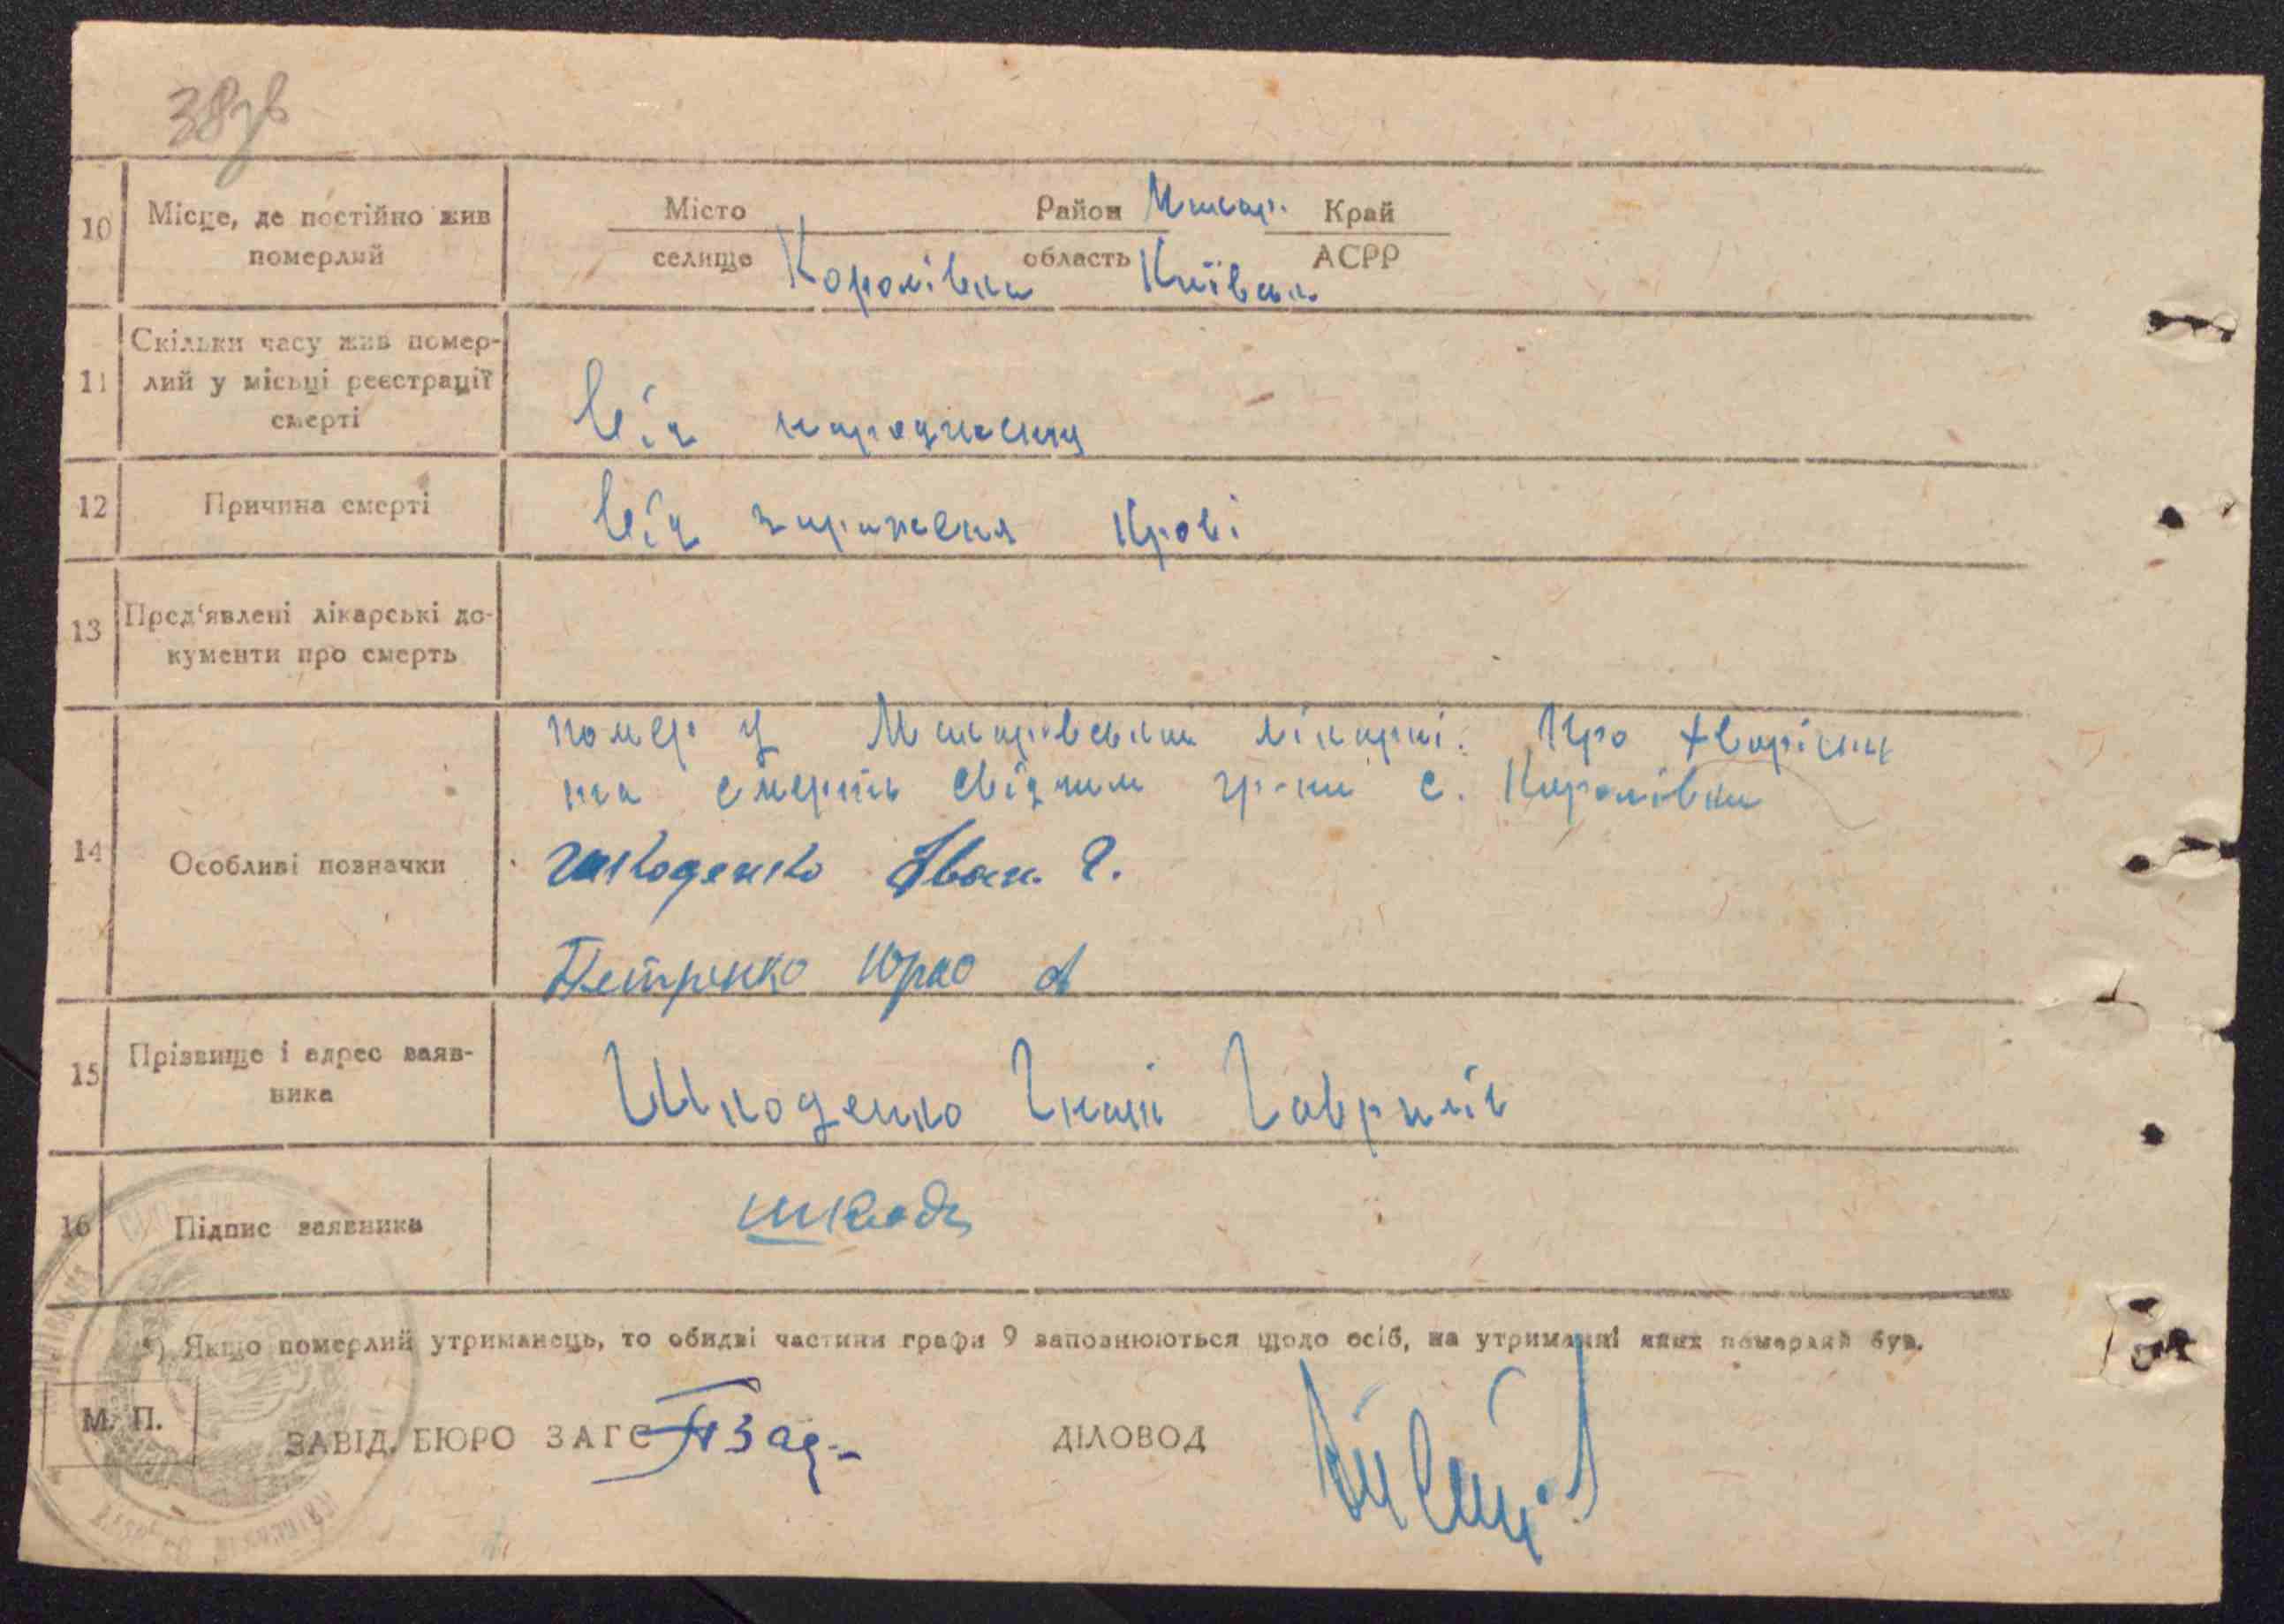 38зв
10 Місце, де постійно жив померлий
Місто Район Макар. Край
селище Королівка область Київськ АСРР
11 Скільки часу жив помер-
лий у місьці реєстрації
смерті
Від народження
12 Причина смерті Від зараженя крові
13 Пред'явлені лікарські до-
кументи про смерть
14 Особливі позначки
помер у Макарівській лікарні. Про
на смерть свідчим гр-ни с. Королівки
Шкоденко Іван. Г.
Петренко Юрко А
15 Прізвище і адрес заяв-
ника
Шкоденко Гнат Гаврилів
16 Підпис заявника Шкод
*) Якщо померлий утриманець, то обидві частини графи 9 заповнюються щодо осіб, на утриманні яких померлий був.
М. П.
ЗАВІД. БЮРО ЗАГС ДІЛОВОД